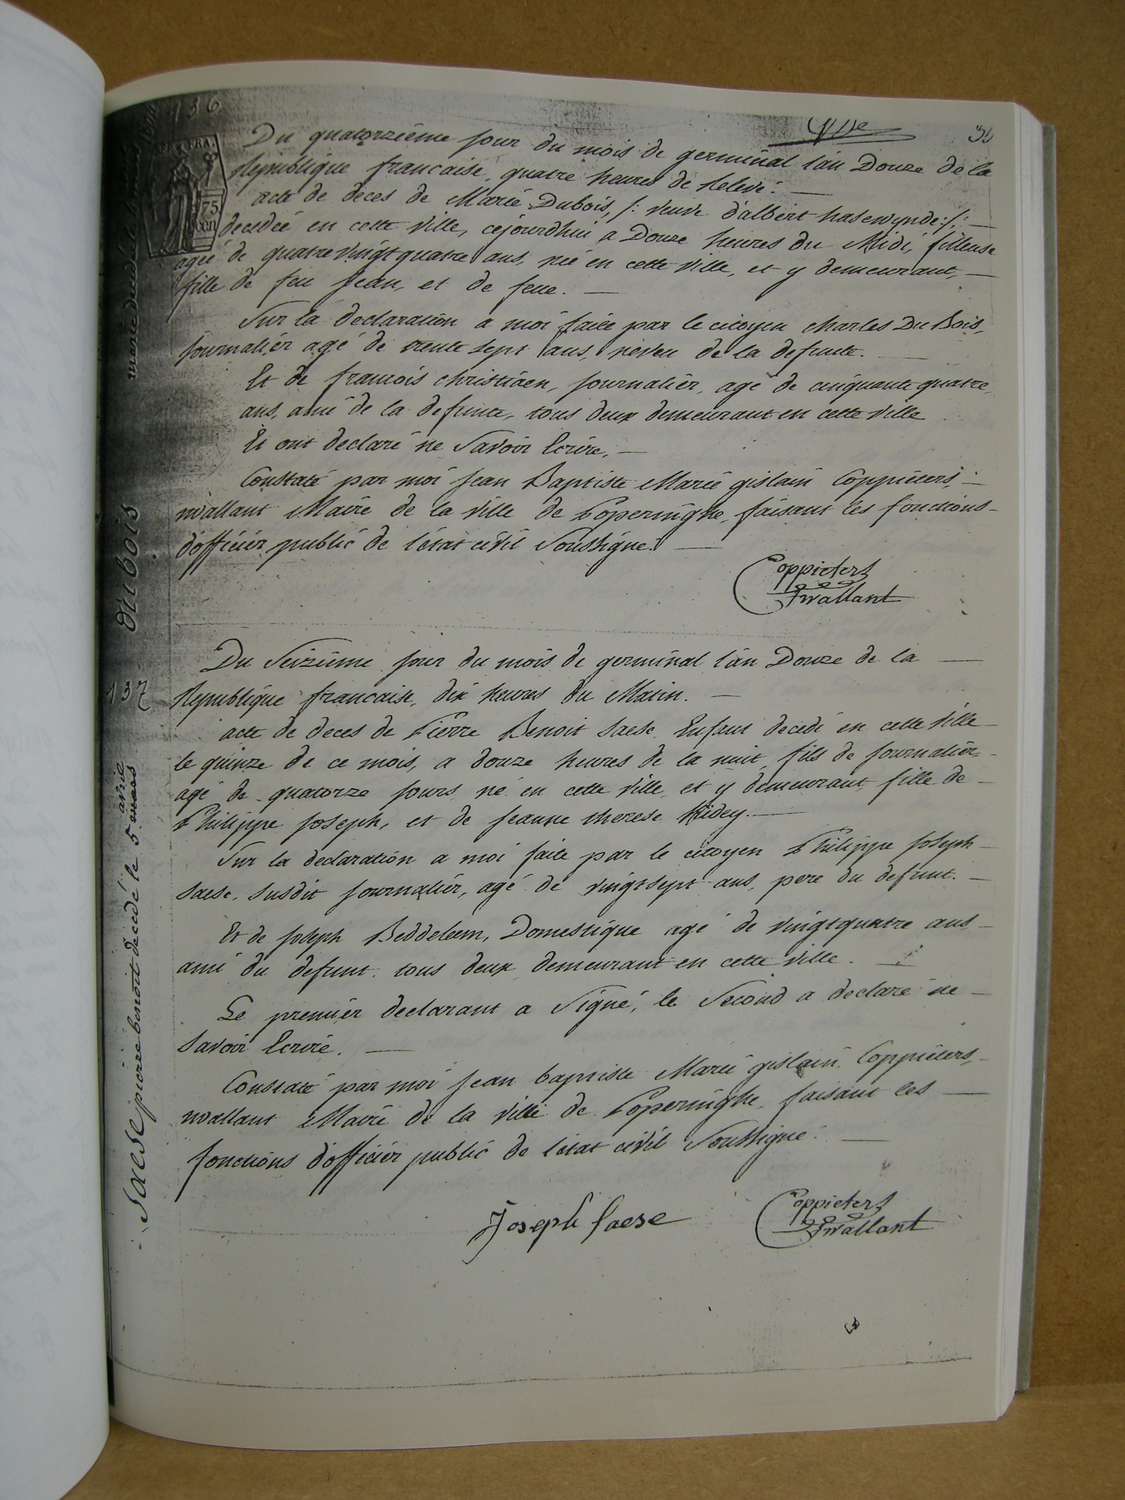 136
34
Du quatorzième jour du mois de germinal l'an Douze de la
Republique francaise, quatre heures de Relevé. —
acte de deces de Marie Dubois, /: veuve d'albert hasewynde :/; —
decedée en cette ville, cejourdhui a Douze heures du Midi, filleuse
agé de quatrevingtquatre ans, née en cette ville, et y demeurant, —
fille de feu Jean, et de feue. —
Sur la declaration a moi faite par le citoyen charles Du Bois,
journalier agé de trente sept ans, neveu de la defunte. —
Et de francois christiaen, journalier, agé de cinquante quatre
ans, ami de la defunte, tous deux demeurant en cette ville
Et ont declaré ne Savoir Ecrire, —
Constaté par moi Jean Baptiste Marie gislain Coppieters —
wallant Maire de la ville de Poperinghe, faisant les fonctions —
d'officier public de l'état civil Soussigné. —
Coppieters
wallant
dubois
137
Du Seizième jour du mois de germinal l'an Douze de la —
Republique francaise, dix heures du Matin. —
acte de deces de Pierre Benoit Saese Enfant decedé en cette ville
le quinze de ce mois, a douze heures de la nuit, fils de journalier
agé de quatorze jours, né en cette ville, et y demeurant, fille de —
Philippe Joseph, et de jeanne therese Kidey. —
Sur la declaration a moi faite par le citoyen Philippe Joseph —
Saese, susdit journalier, agé de vingtsept ans, pere du defunt. —
Et de Joseph Beddeleem, Domestique agé de vingtquatre ans —
ami du defunt, tous deux demeurant en cette ville. —
Le premier declarant a Signé, le Second a declaré ne —
Savoir Ecrire. —
Constaté par moi Jean baptiste Marie gislain Coppieters, —
wallant Maire de la ville de Poperinghe, faisant les —
fonctions d'officier public de l'état civil Soussigné. —
Joseph Saese
Coppieters
wallant
Saese pierre benoit decedé le 5 mars
avril